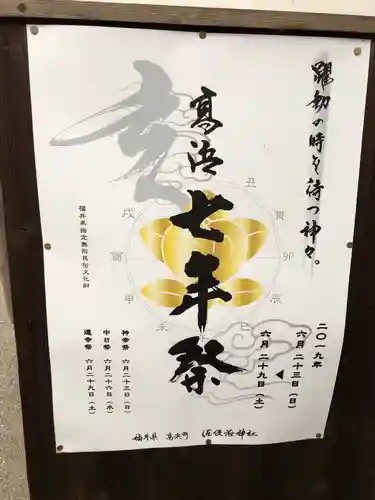 躍動の時を待つ神々。
高浜七年祭
玄
福井県指定無形民俗文化財
丑
寅
卯
辰
巳
未
申
酉
戌
二〇一九年
六月二十三日(日)
六月二十九日(土)
神幸祭 六月二十三日(日)
中日祭 六月二十六日(水)
還幸祭 六月二十九日(土)
福井県 高浜町 佐伎治神社